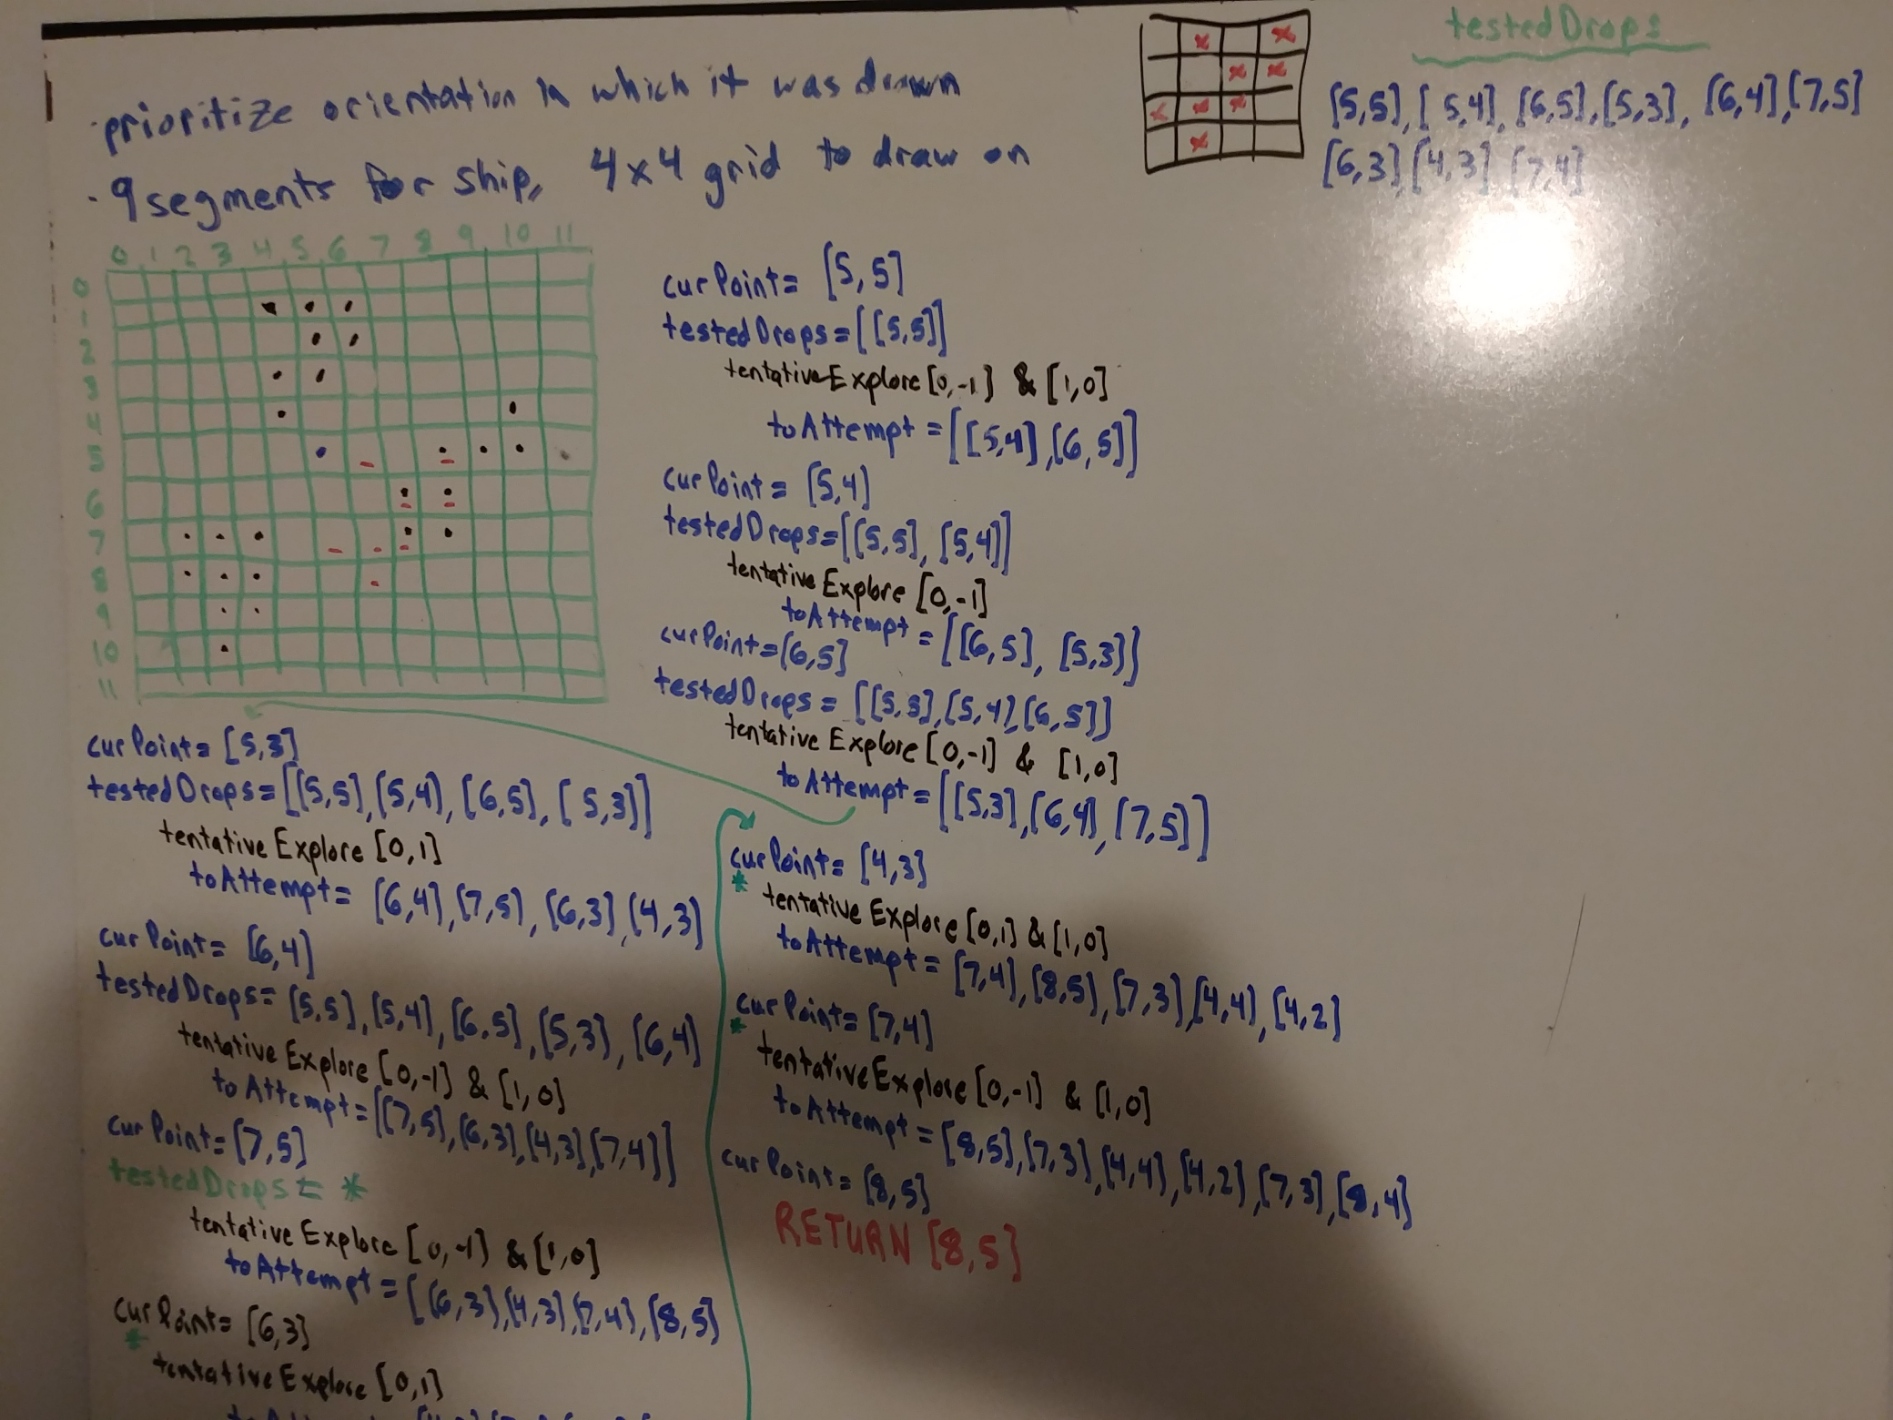 ·prioritize orientation in which it was drawn
·9segments for ship, 4x4 grid to draw on
testedDrops
[5,5],[5,4],[6,5],[5,3],[6,4],[7,5]
[6,3][4,3][7,4]
0 1 2 3 4 5 6 7 8 9 10 11
0
1
2
3
4
5
6
7
8
9
10
11
curPoint= [5,5]
testedDrops=[[5,5]]
tentativeExplore[0,-1] & [1,0]
toAttempt=[[5,4],[6,5]]
curPoint= [5,4]
testedDrops=[[5,5],[5,4]]
tentativeExplore [0,-1]
toAttempt=[[6,5],[5,3]]
curPoint=[6,5]
testedDrops=[[5,5],[5,4],[6,5]]
tentativeExplore[0,-1] & [1,0]
toAttempt=[[5,3],[6,4],[7,5]]
curPoint=[5,3]
testedDrops=[[5,5],[5,4],[6,5],[5,3]]
tentativeExplore[0,1]
toAttempt= [6,4],[7,5],[6,3],[4,3]
curPoint= [6,4]
testedDrops= [5,5],[5,4],[6,5],[5,3],[6,4]
tentativeExplore[0,-1] & [1,0]
toAttempt=[[7,5],[6,3],[4,3],[7,4]]
curPoint=[7,5]
testedDrops= *
tentativeExplore[0,-1] & [1,0]
toAttempt=[[6,3],[4,3],[7,4],[8,5]
curPoint= [6,3]
*
tentativeExplore [0,1]
curPoint= [4,3]
*
tentativeExplore[0,1] & [1,0]
toAttempt= [7,4],[8,5],[7,3],[4,4],[4,2]
curPoint= [7,4]
*
tentativeExplore[0,-1] & [1,0]
toAttempt=[8,5],[7,3],[4,4],[4,2],[7,3],[8,4]
curPoint= [8,5]
RETURN [8,5]